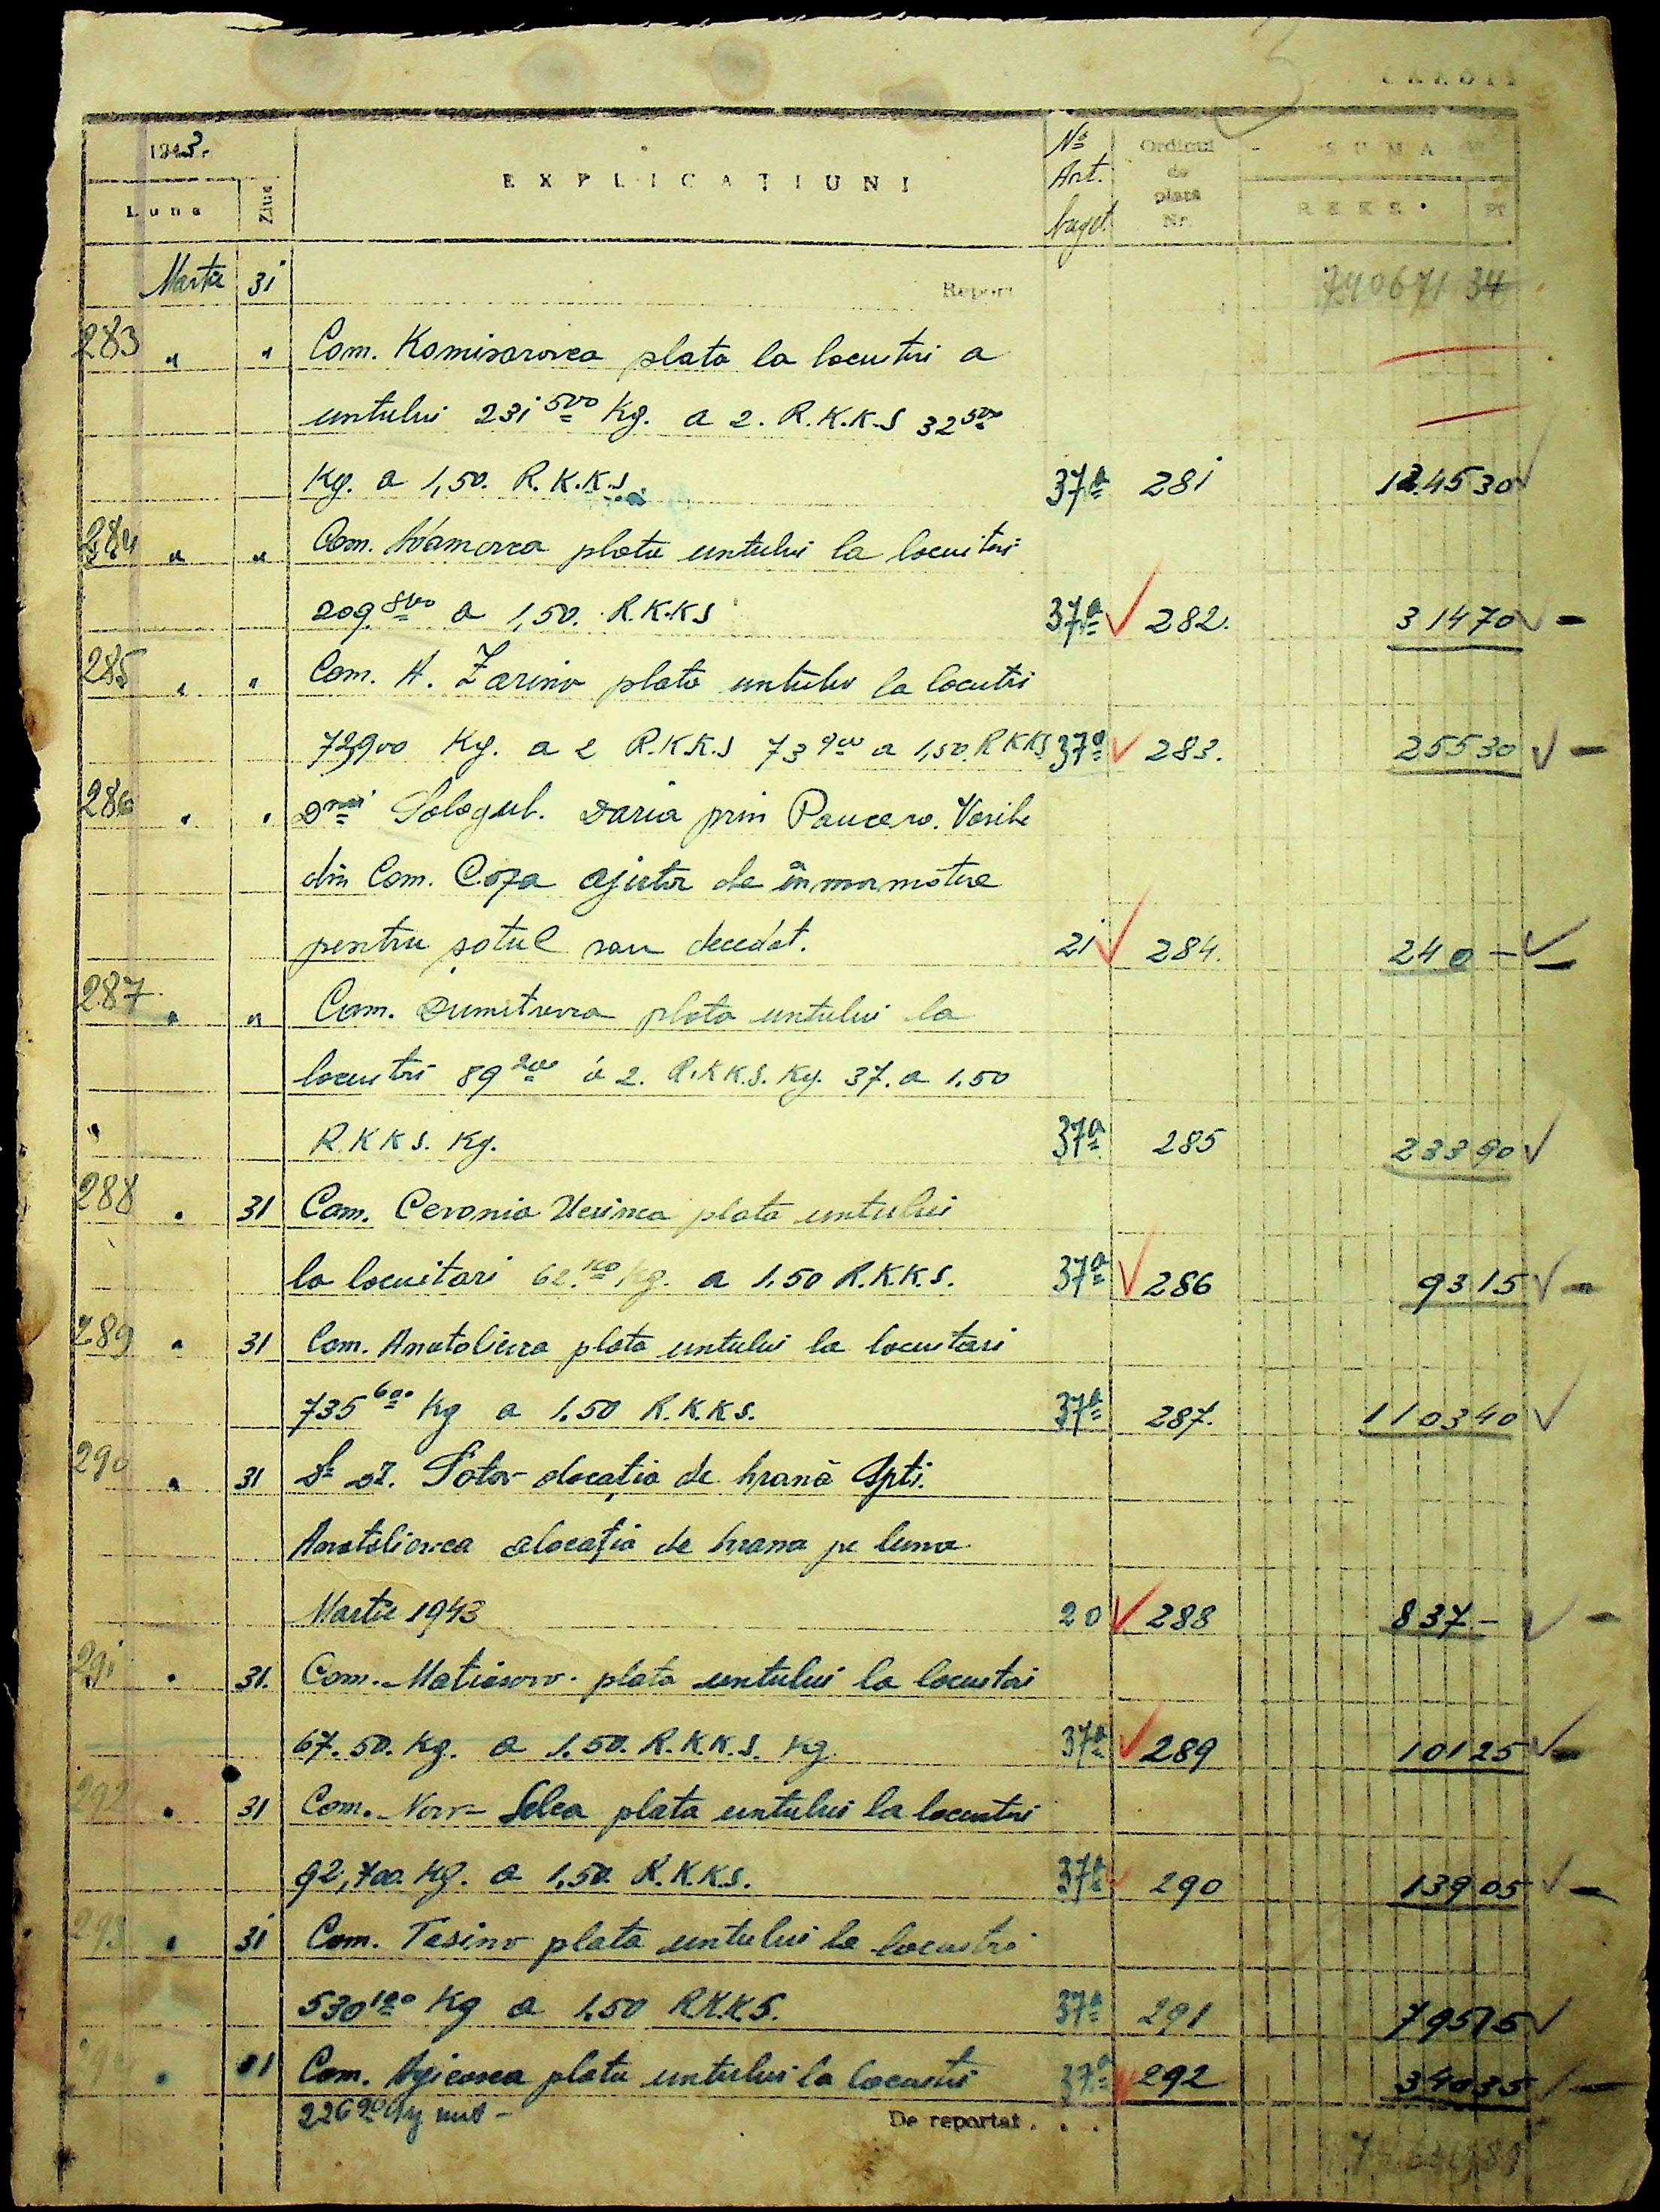 CREDIT
1943.
Luna
Ziua
EXPLICAȚIUNI
No Art. buget.
Ordinul de plată Nr.
SUMA
REKS.
Pf
Martie 31 Report 740671 34
283 " " Com. Komisarovca plata la locuitori a
untului 231 500 Kg. a 2. R.K.K.S 32 500
Kg. a 1,50. R.K.K.S 37a 281 124530
284 " " Com. plata untului la locuitori
209 800 a 1,50. R.K.K.S 37a 282. 31470
285 " " Com. A. Zarino plata untului la locuitri
72900 Kg. a 2 R.K.K.S 73 900 a 1,50. RKKS 37a 283. 25530
286 " " Dnei Sologub. Daria prin Vasile
din Com. ajutor de înmormatare
pentru sotul sau decedat. 21 284. 240 -
287 " " Com. plata untului la
locuitori 89 200 a 2. R.K.K.S. Kg. 37. a 1.50
R.K.K.S. Kg. 37a 285 23390
288 " 31 Com. plata untului
la locuitari 62. 100 Kg. a 1.50 R.K.K.S. 37a 286 9315
289 " 31 Com. Anatolievca plata untului la locuitari
735 600 Kg a 1.50 R.K.K.S. 37a 287. 110340
290 " 31 alocația de hrană Spti.
Anatolievca alocația de hrana pe luna
Martie 1943 20 288 837.-
291 " 31. Com. plata untului la locuitai
67.50. Kg. a 1.50. R.K.K.S. Kg. 37a 289 10125
292 " 31 Com. plata untului la locuitri
92,700. Kg. a 1,50. R.K.K.S. 37a 290 13905
293 " 31 Com. Tasino plata untului la locuitri
530 100 Kg a 1.50 R.K.K.S. 37a 291 79515
294 " 31 Com. plata untului la locuitri 37a 292 34035
De reportat . . .